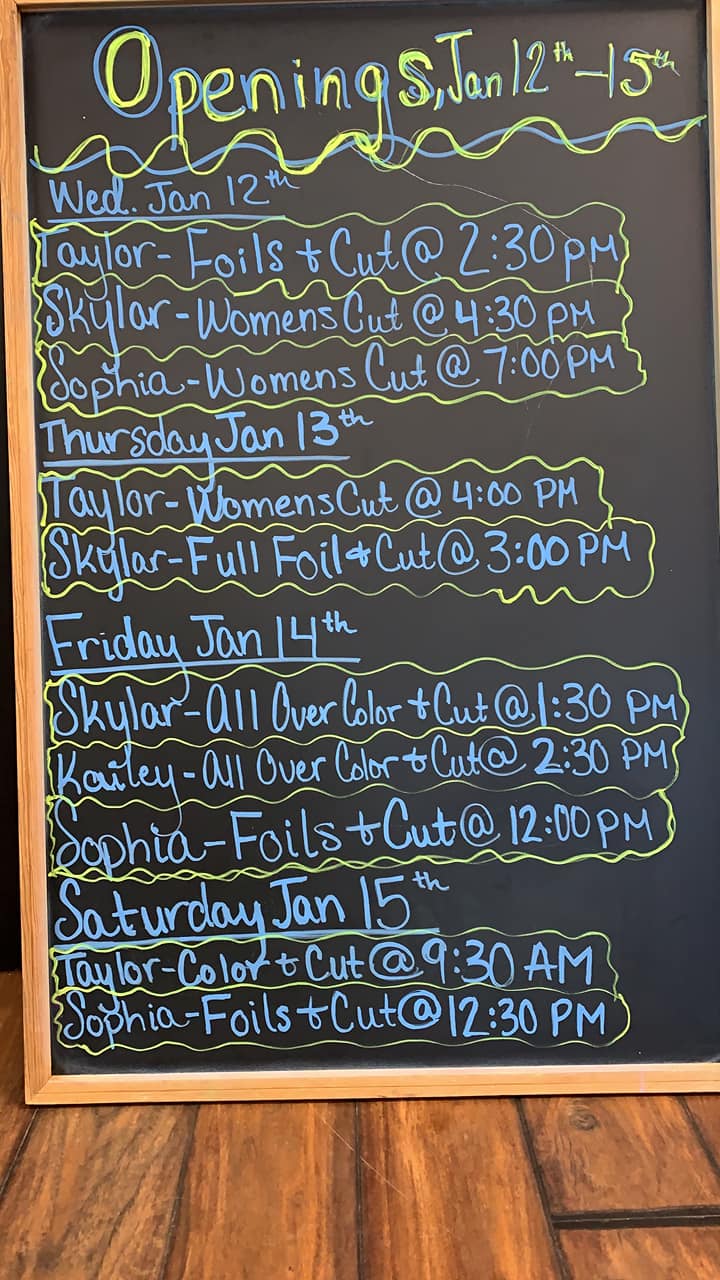 Openings, Jan 12th-15th
Wed. Jan 12th
Taylor- Foils + Cut @ 2:30 PM
Skylar-Womens Cut @ 4:30 PM
Sophia-Womens Cut @ 7:00 PM
Thursday Jan 13th
Taylor-Womens Cut @ 4:00 PM
Skylar-Full Foil + Cut @ 3:00 PM
Friday Jan 14th
Skylar-All Over Color + Cut @ 1:30 PM
Kailey-All Over Color + Cut @ 2:30 PM
Sophia-Foils + Cut @ 12:00 PM
Saturday Jan 15th
Taylor-Color + Cut @ 9:30 AM
Sophia-Foils + Cut @ 12:30 PM